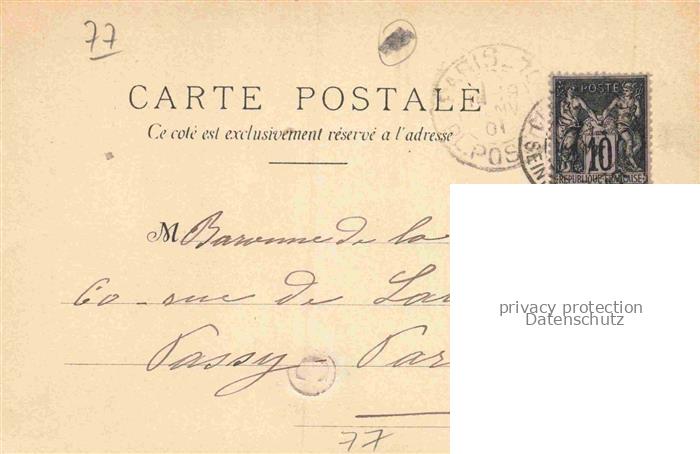 77
CARTE POSTALE
Ce coté est exclusivement réservé a l'adresse
PARIS
01
POSTE
10
REPUBLIQUE FRANÇAISE
M Baronne de la
60 - rue de
Passy - Par
77
privacy protection
Datenschutz